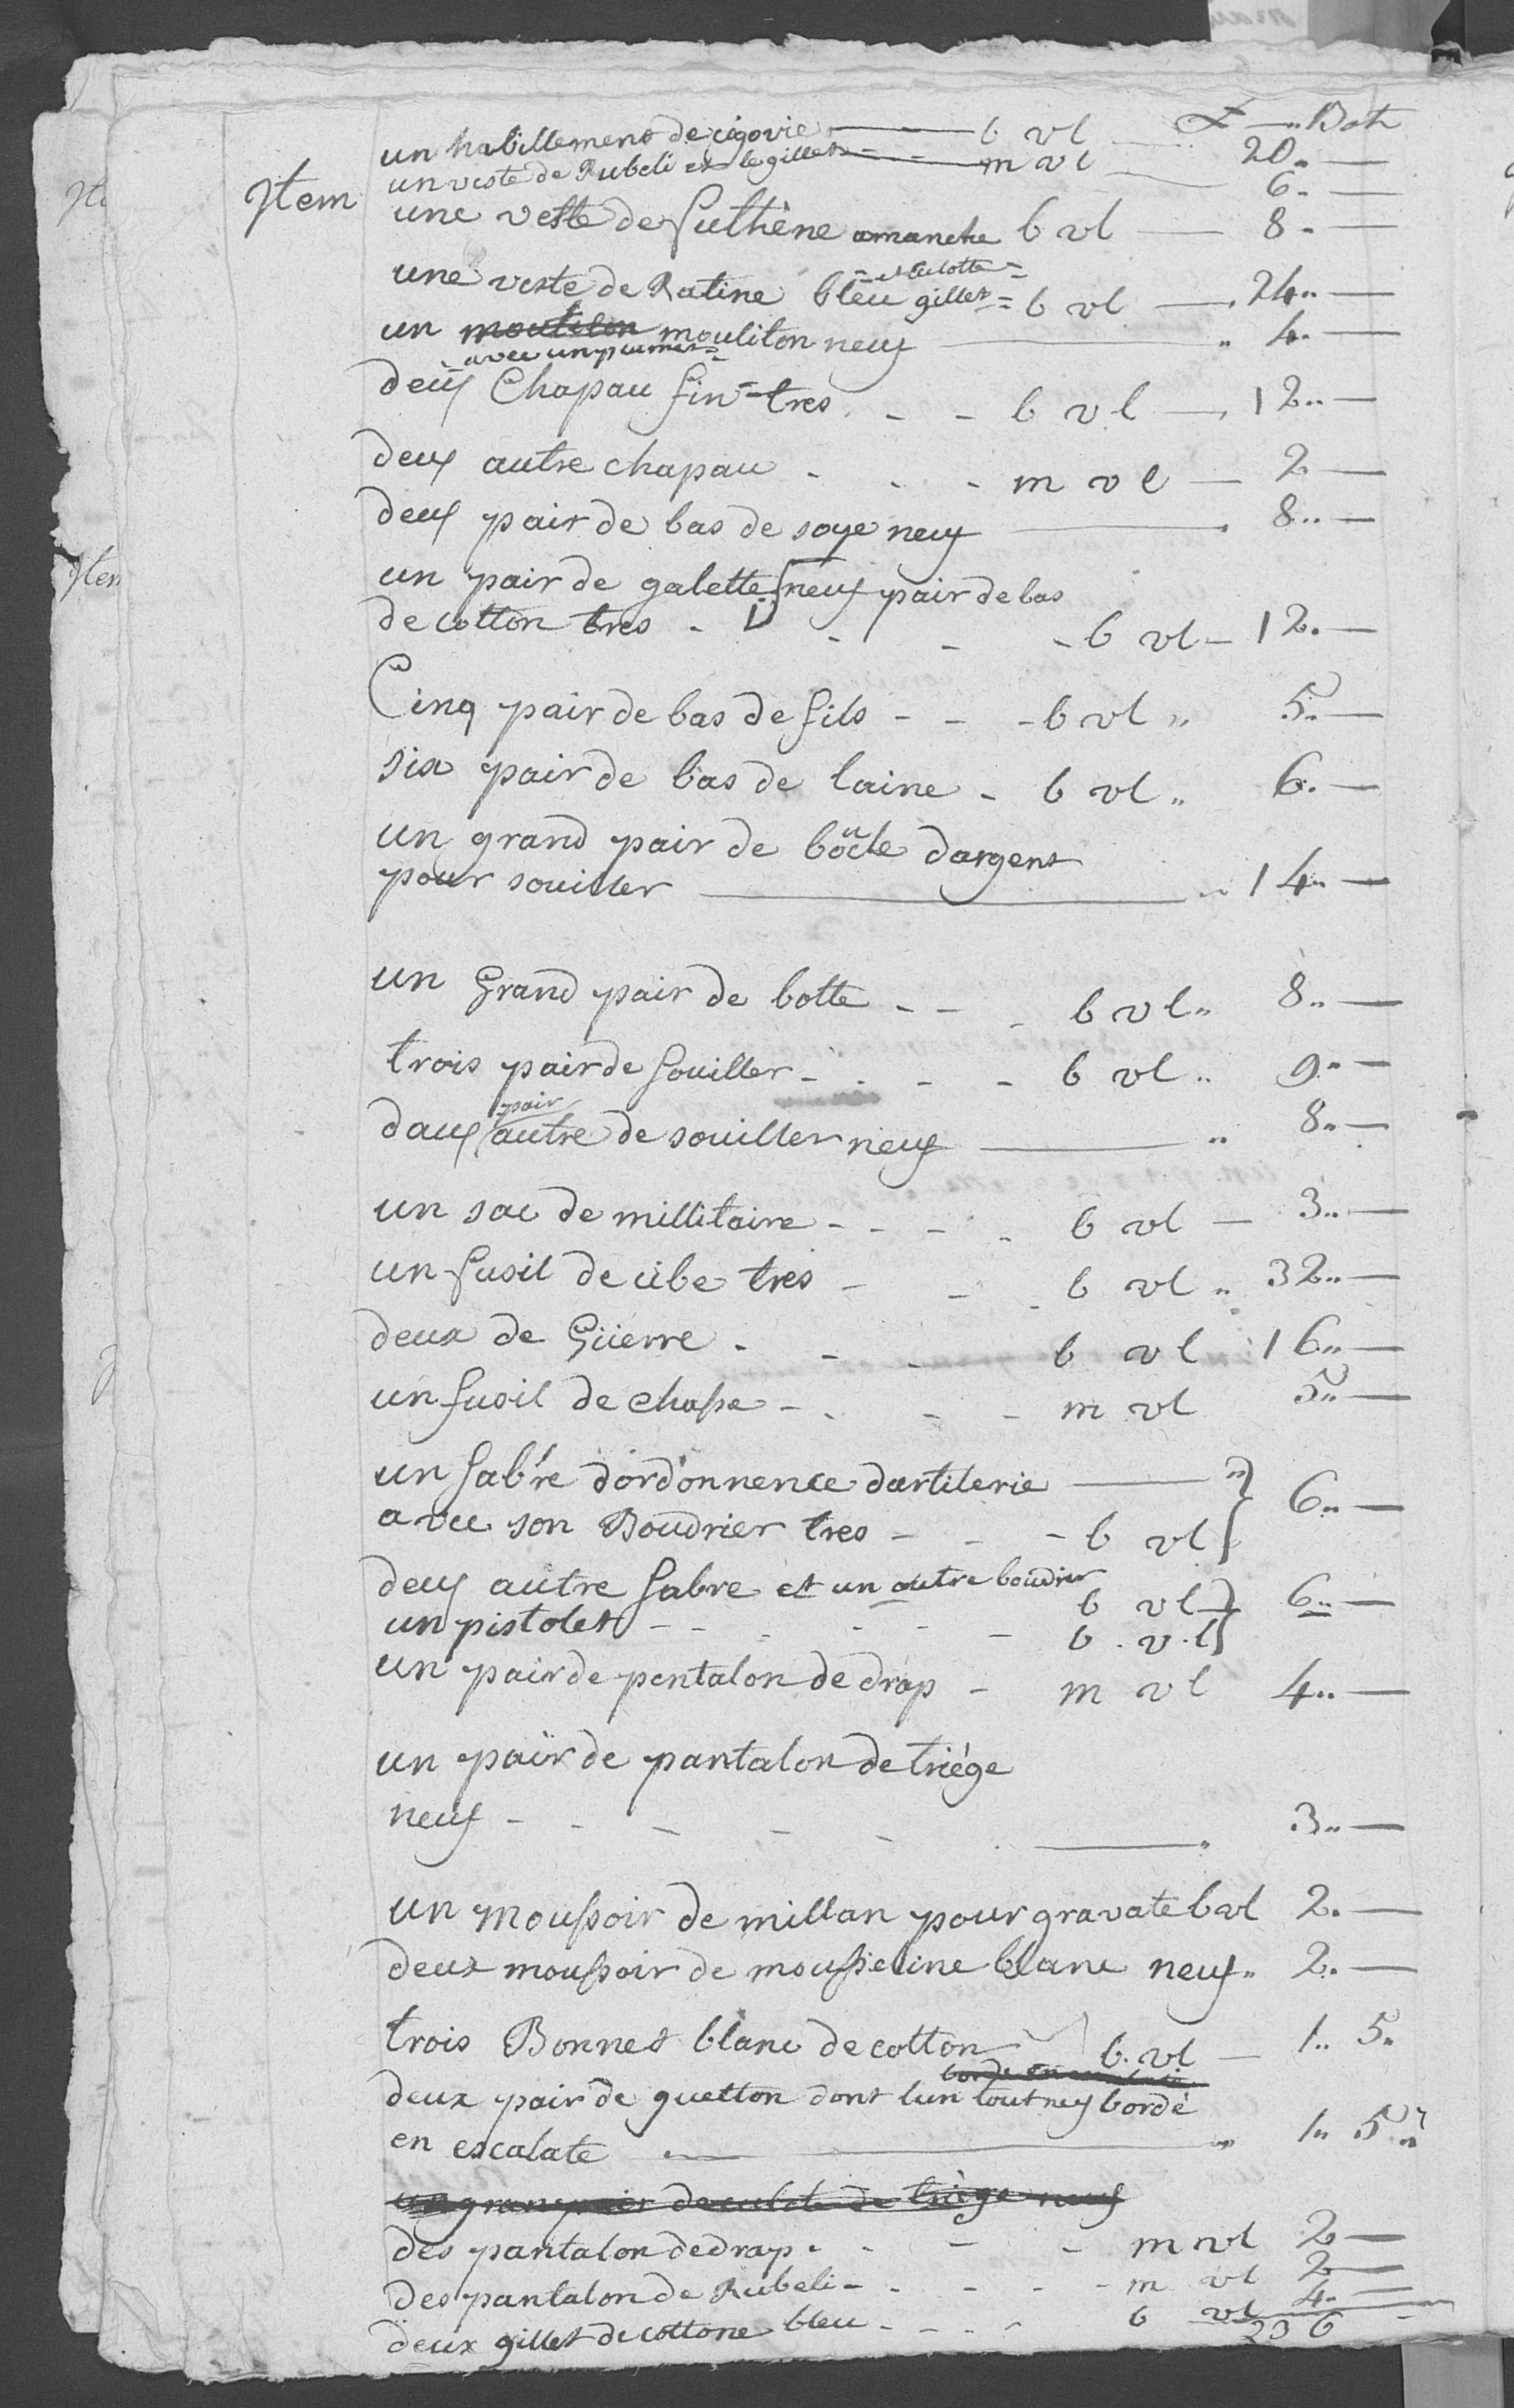 £ — Batz
un habillement de cigovie — b vl — 20..—
un veste de Rubeli et le gillet — m vl — 6.—
Jtem une veste de futhène amanche b vl — 8.—
= et culotte =
une veste de Ratine bleu gillet = b vl — 24..—
un moutelon mouliton neuf — 4.—
= avec un plumet =
deuf Chapau fin = tres - - b vl — 12..—
deuf autre chapau - - - m vl — 2 —
deuf pair de bas de soye neuf — 8..—
un pair de galette neuf pair de bas
de cotton tres - - - b vl — 12.—
Cinq pair de bas de fils - - - b vl " 5.—
six pair de bas de laine - b vl " 6.—
un grand pair de bôcle dargent
pour souiller — 14..—
un Grand pair de botte - - - b vl " 8..—
trois pair de souiller - - - - b vl " 9..—
pair
dauf autre de souiller neuf — " 8..—
un sac de millitaire - - - - b vl — 3..—
un fusil de cibe tres - - - b vl " 32..—
deux de Güerre - - - b vl 16..—
un fusil de chasse - - - - m vl 5..—
un sabre dordonnence dartilerie — "
avec son Boudrier tres - - - b vl 6..—
deuf autre sabre et un autre boudrier
b vl 6..—
un pistolet - - - - - - b . v . l
un pair de pentalon de drap - m vl 4..—
un pair de pantalon de triége
neuf - - - - - — " 3..—
un moussoir de millan pour gravate b vl 2.—
deux moussoir de mousseline blanc neuf " 2.—
trois Bonnet blanc de cotton b . vl — 1.. 5.
deux pair de guetton dont lun tout neuf bordé
en escalate — " 1.. 5..
un gran pair de culote de triège neuf
des pantalon de drap - - - - m vl 2 —
des pantalon de Rubeli - - - - - m vl 2 —
deux gillet de cottone bleu - - - - b vl 4. —
236
Jtem